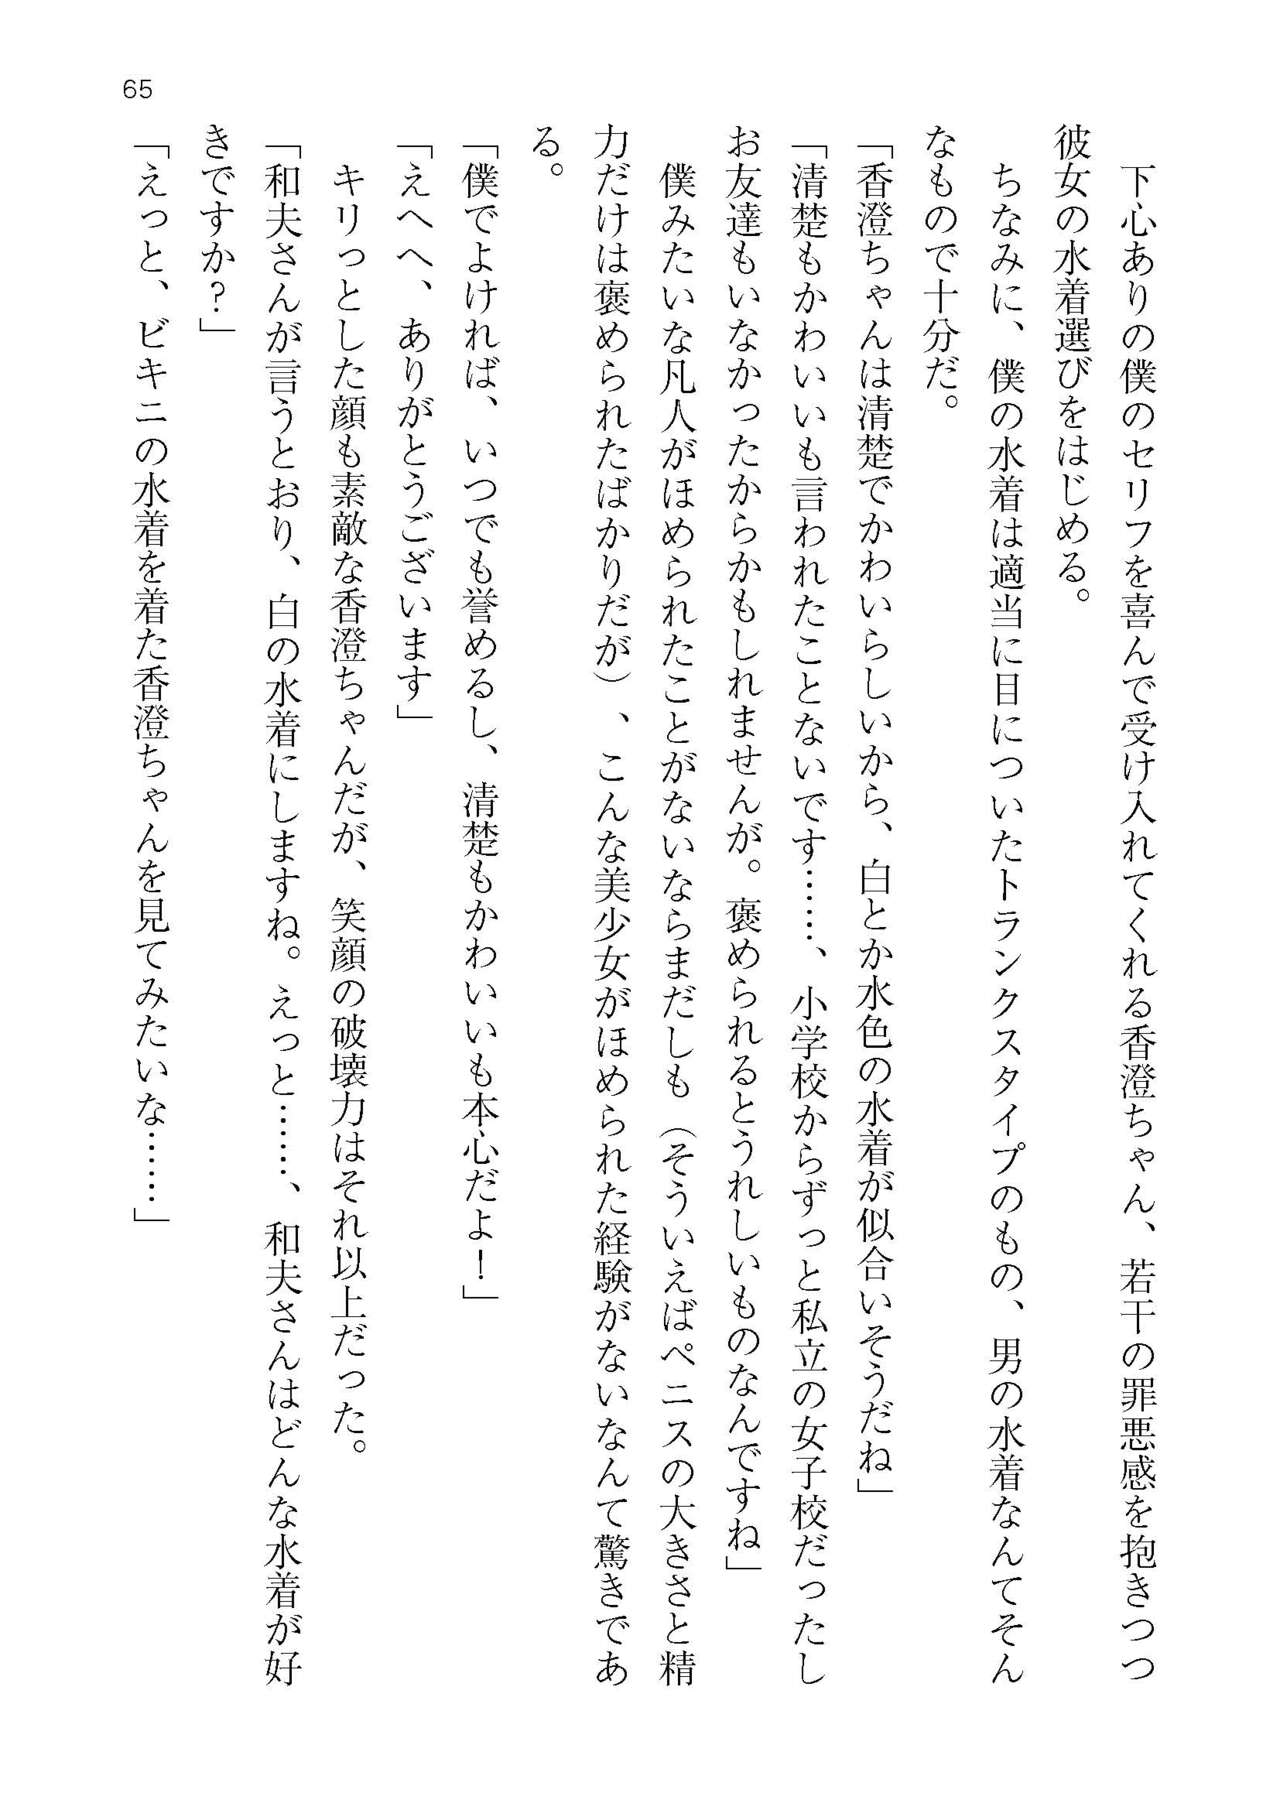 65
下心ありの僕のセリフを喜んで受け入れてくれる香澄ちゃん、若干の罪悪感を抱きつつ
彼女の水着選びをはじめる。
ちなみに、僕の水着は適当に目についたトランクスタイプのもの、男の水着なんてそん
なもので十分だ。
「香澄ちゃんは清楚でかわいらしいから、白とか水色の水着が似合いそうだね」
「清楚もかわいいも言われたことないです……、小学校からずっと私立の女子校だったし
お友達もいなかったからかもしれませんが。褒められるとうれしいものなんですね」
僕みたいな凡人がほめられたことがないならまだしも（そういえばペニスの大きさと精
力だけは褒められたばかりだが）、こんな美少女がほめられた経験がないなんて驚きであ
る。
「僕でよければ、いつでも誉めるし、清楚もかわいいも本心だよ！」
「えへへ、ありがとうございます」
キリっとした顔も素敵な香澄ちゃんだが、笑顔の破壊力はそれ以上だった。
「和夫さんが言うとおり、白の水着にしますね。えっと……、和夫さんはどんな水着が好
きですか？」
「えっと、ビキニの水着を着た香澄ちゃんを見てみたいな……」